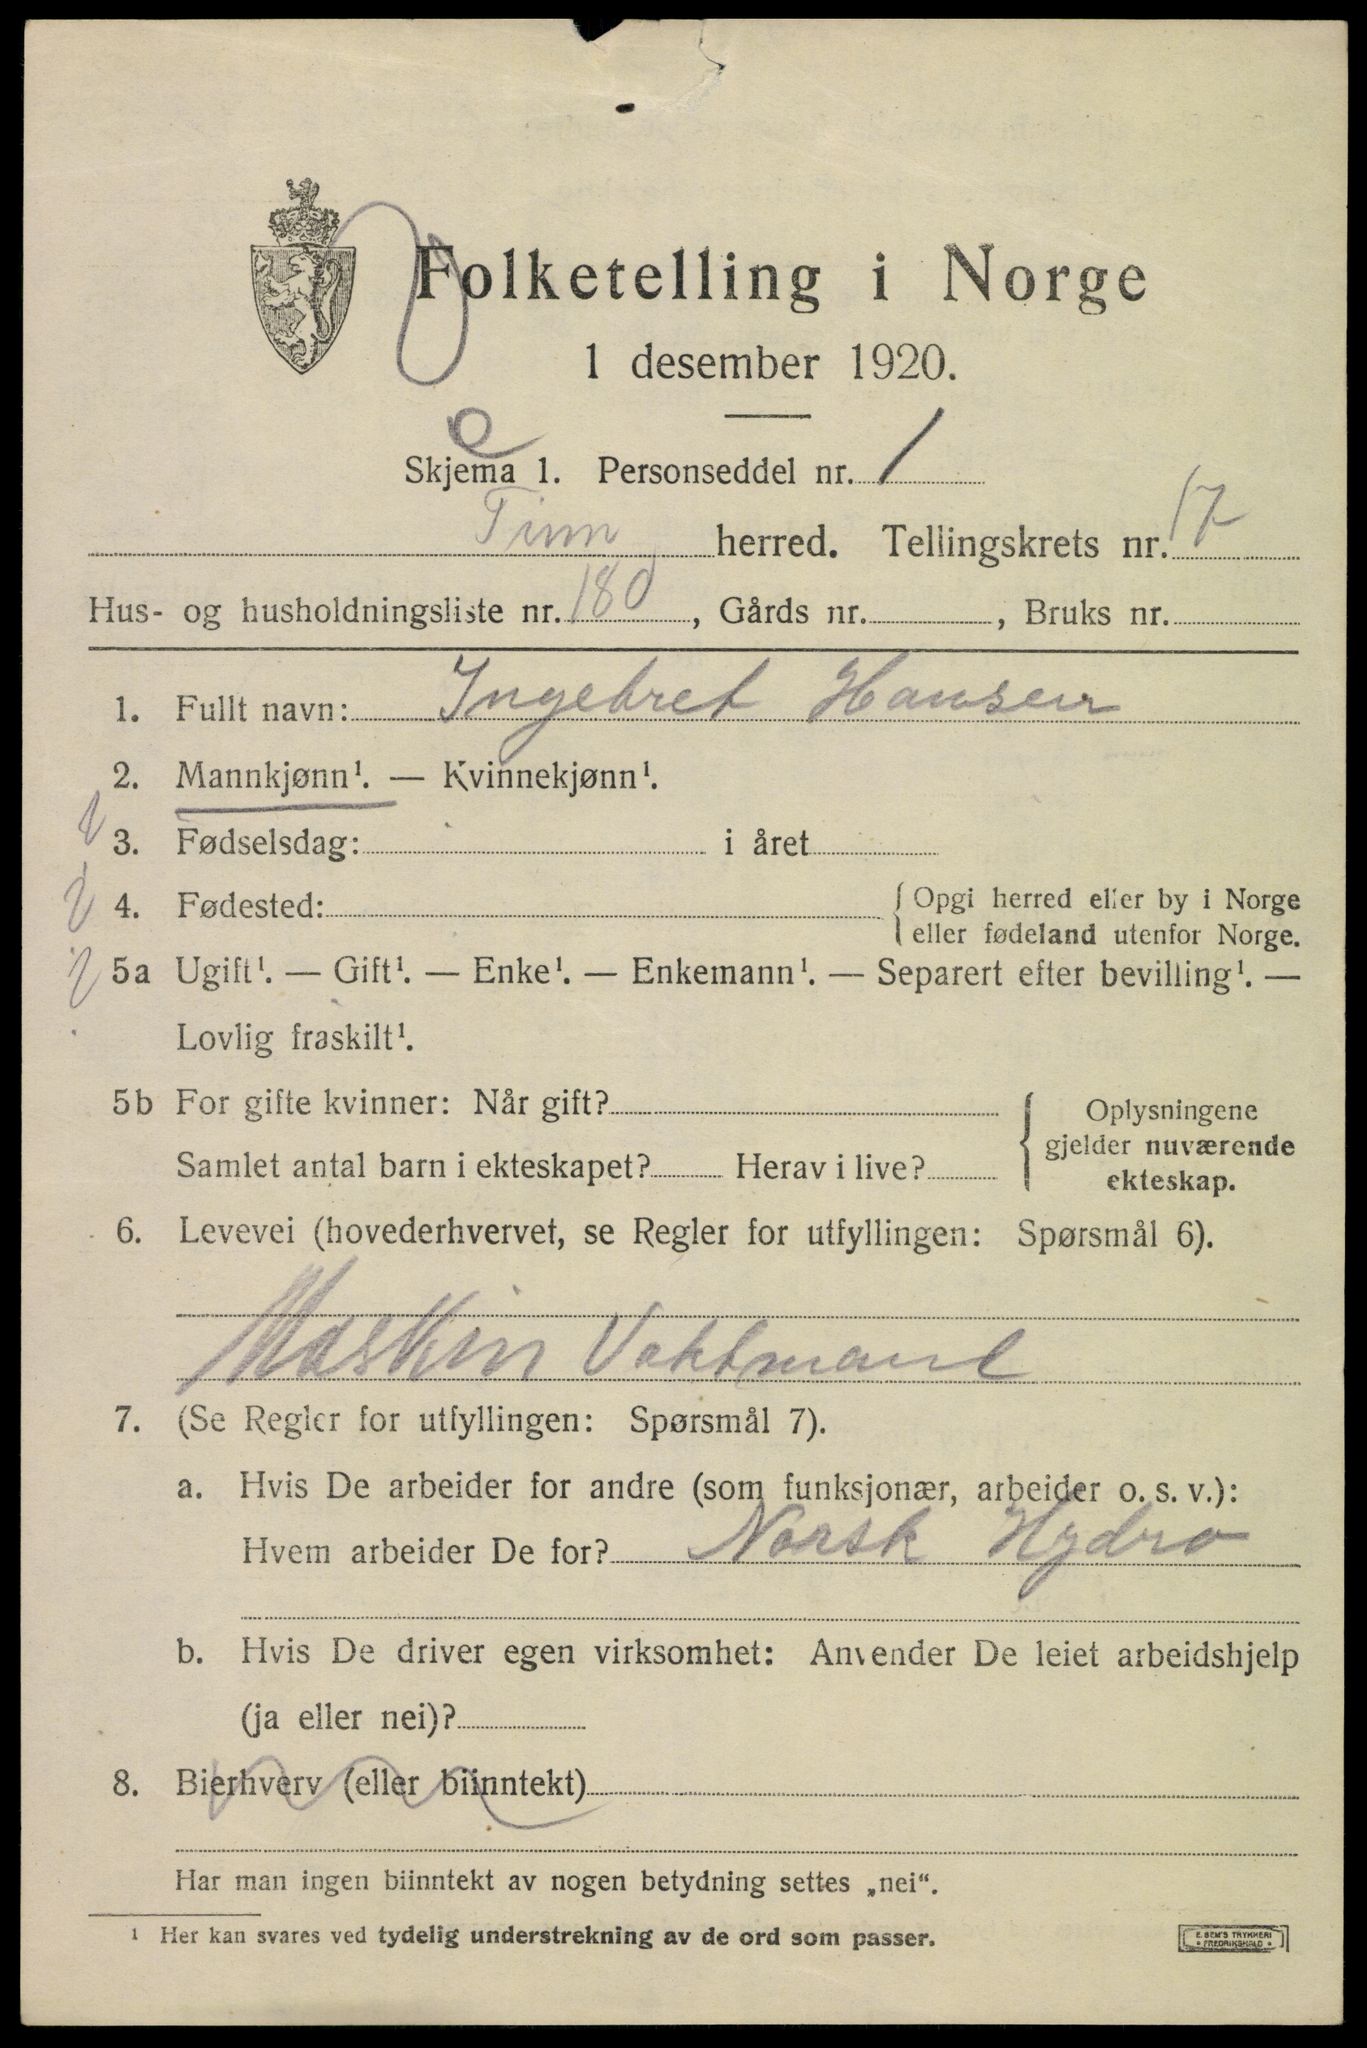 Folketelling i Norge
1 desember 1920.
Skjema 1. Personseddel nr. 1
Tinn herred. Tellingskrets nr. 17
Hus- og husholdningsliste nr. 180, Gårds nr. , Bruks nr.
1. Fullt navn: Ingebret Hansen
2. Mannkjønn¹. — Kvinnekjønn¹.
3. Fødselsdag: i året
4. Fødested: { Opgi herred eller by i Norge
eller fødeland utenfor Norge.
5a Ugift¹. — Gift¹. — Enke¹. — Enkemann¹. — Separert efter bevilling¹. —
Lovlig fraskilt¹.
5b For gifte kvinner: Når gift?
Samlet antal barn i ekteskapet? Herav i live?
{ Oplysningene
gjelder nuværende
ekteskap.
6. Levevei (hovederhvervet, se Regler for utfyllingen: Spørsmål 6).
Maskin Vaktmand
7. (Se Regler for utfyllingen: Spørsmål 7).
a. Hvis De arbeider for andre (som funksjonær, arbeider o. s. v.):
Hvem arbeider De for? Norsk Hydro
b. Hvis De driver egen virksomhet: Anvender De leiet arbeidshjelp
(ja eller nei)?
8. Bierhverv (eller biinntekt)
Har man ingen biinntekt av nogen betydning settes „nei“.
¹ Her kan svares ved tydelig understrekning av de ord som passer.
E. SEM'S TRYKKERI
• FREDRIKSHALD •